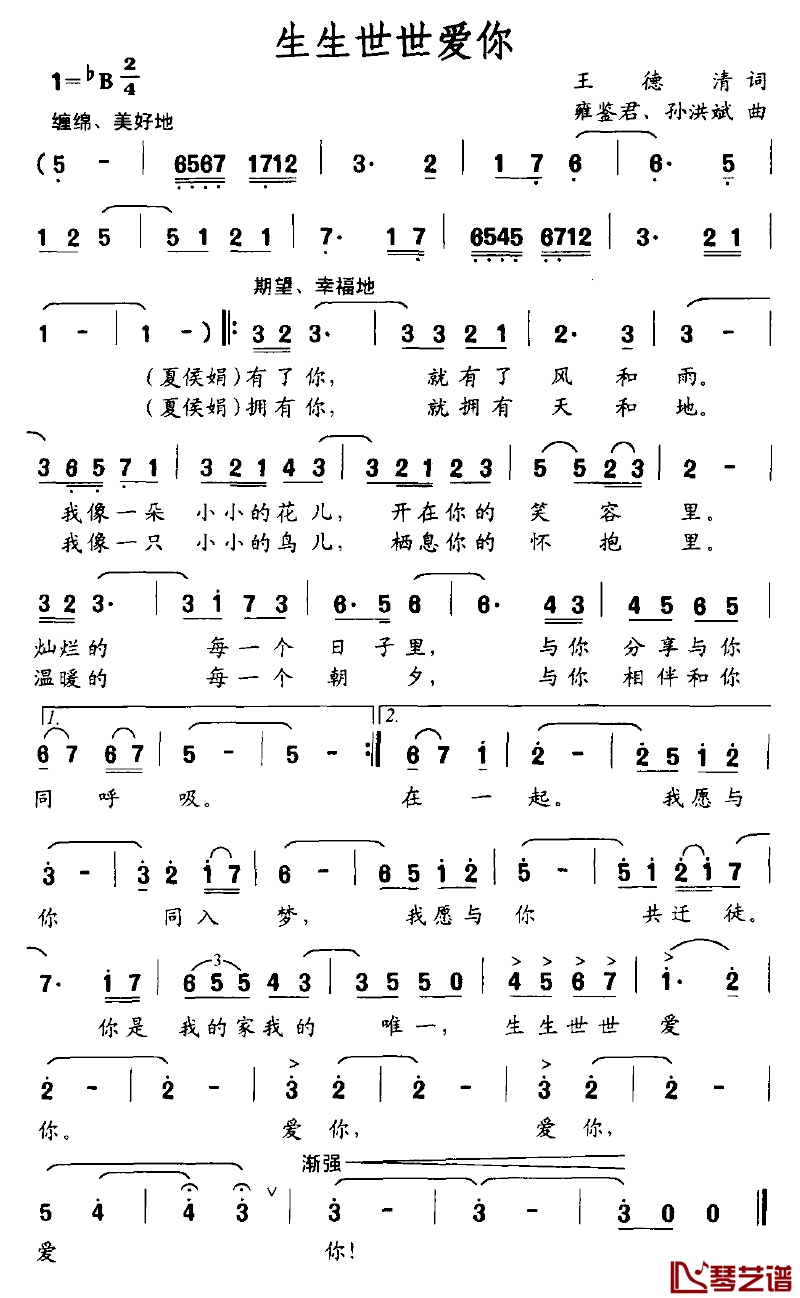 生生世世爱你
1=♭B 2/4
王德清词
缠绵、美好地
雍鉴君、孙洪斌 曲
(5 - | 6567 1712 | 3· 2 | 1 7 6 | 6· 5 |
1 2 5 | 5 1 2 1 | 7· 1 7 | 6545 6712 | 3· 2 1 |
期望、幸福地
1 - | 1 - ) |: 3 2 3· | 3 3 2 1 | 2· 3 | 3 -
(夏侯娟)有了你, 就有了 风 和 雨。
(夏侯娟)拥有你, 就拥有 天 和 地。
3 6 5 7 1 | 3 2 1 4 3 | 3 2 1 2 3 | 5 5 2 3 | 2 - |
我像一朵 小小的花儿, 开在你的 笑 容 里。
我像一只 小小的鸟儿, 栖息你的 怀 抱 里。
3 2 3· | 3 1 7 3 | 6· 5 6 | 6· 4 3 | 4 5 6 5 |
灿烂的 每一个 日 子里, 与你 分享与你
温暖的 每一个 朝 夕, 与你 相伴和你
1. 2.
6 7 6 7 | 5 - | 5 - :| 6 7 1 | 2 - | 2 5 1 2 |
同 呼 吸。 在 一 起。 我愿与
3 - | 3 2 1 7 | 6 - | 6 5 1 2 | 5 - | 5 1 2 1 7
你 同入 梦, 我愿与 你 共迁 徒。
7· 1 7 | 3 6 5 5 4 3 | 3 5 5 0 | 4 5 6 7 | 1· 2
你是 我的家我的 唯一, 生生世世 爱
2 - | 2 - | 3 2 | 2 - | 3 2 | 2 - |
你。 爱 你, 爱 你,
渐强
5 4 | 4 3 | 3 - | 3 - | 3 0 0 |
爱 你!
琴艺谱